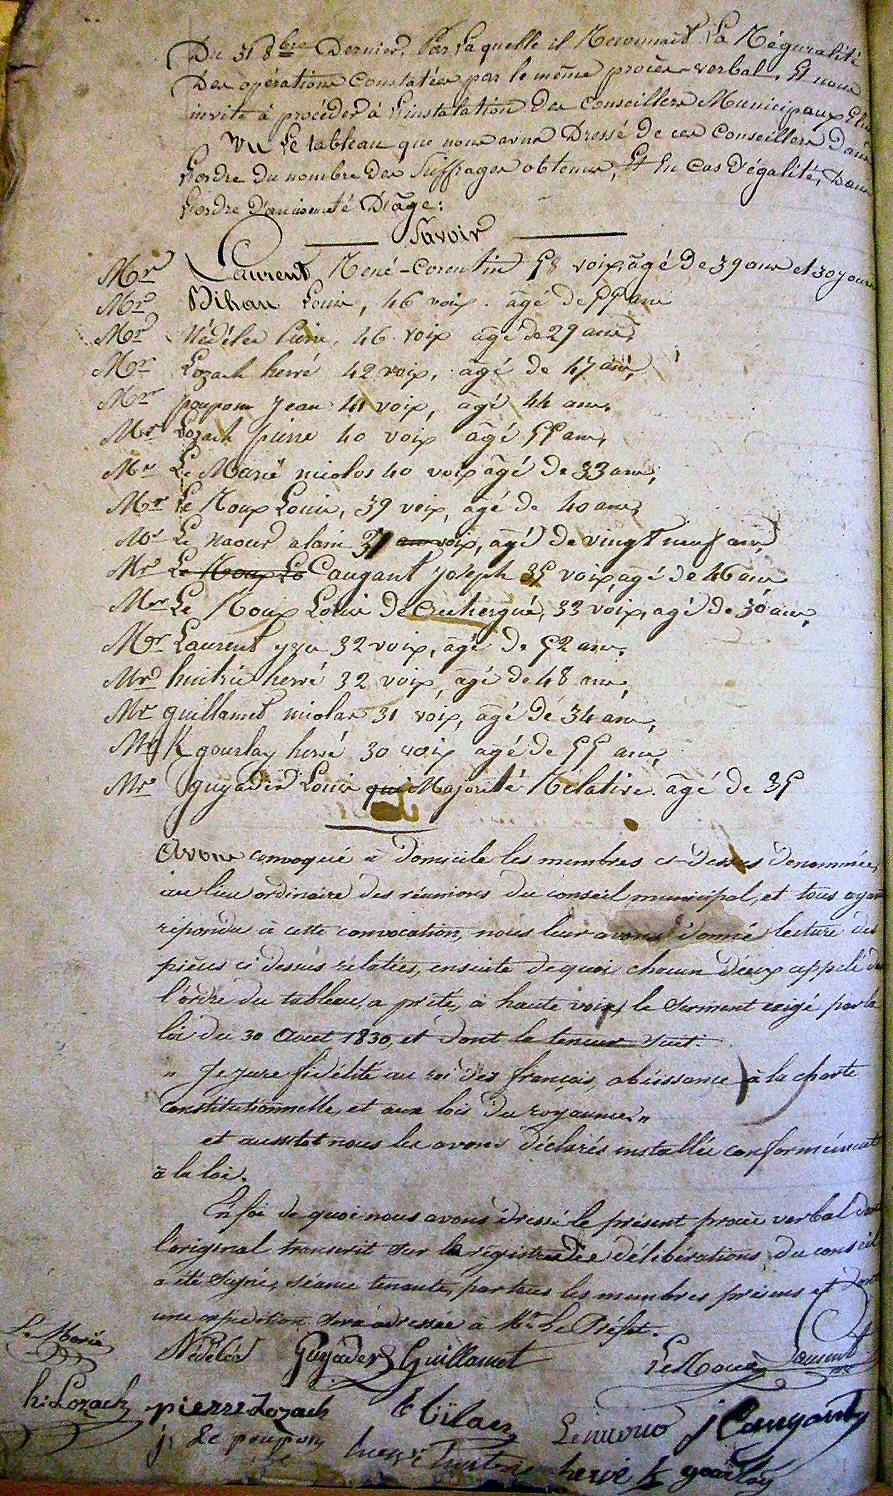 Du 31 8bre Dernier, Par Laquelle il Reconnait La Régularité
Des opérations constatées par le même procès-verbal, Et nous
invite à procéder à L'instalation Des Conseillers Municipaux Elus
Vu Le tableau que nous avons Dressé de ces Conseillers Dans
L'ordre du nombre des Suffrages obtenus, Et En cas D'égalité, Dans
L'ordre D'ancienneté D'âge:
Savoir
Mr Laurent, René-Corentin 58 voix, âgé de 39 ans et 30 jours
Mr Bihan Louis, 46 voix. âgé de 55 ans
Mr Nédélec Pierre, 46 voix âgé de 29 ans,
Mr Lozach hervé 42 voix, âgé de 47 ans,
Mr poupon Jean 41 voix, âgé 44 ans,
Mr Lozach pierre 40 voix âgé 55 ans,
Mr Le Marié nicolas 40 voix âgé de 33 ans,
Mr Le Roux Louis, 39 voix, agé de 40 ans,
Mr Le naour alain voix, agé de vingt neuf ans,
Mr Le Roux Lo Caugant Joseph 35 voix, agé de 46 ans
Mr Le Roux Louis de 33 voix, agé de 30 ans,
Mr Laurent yves 32 voix, âgé de 52 ans,
Mr huitric hervé 32 voix, âgé de 48 ans,
Mr guillamet nicolas 31 voix, âgé de 34 ans,
Mr K gourlay hervé 30 voix agé de 55 ans,
Mr guyader Louis qui Majorité Rélative. âgé de 35
Avons convoqué à Domicile les membres ci-dessus dénommés,
au lieu ordinaire des réunions du conseil municipal, et tous ayant
répondu à cette convocation, nous leur avons donné lecture des
pièces ci dessus rélatées, ensuite de quoi chacun d'eux appelé dans
l'ordre du tableau, a prêté, à haute voix, le Serment exigé par la
loi du 30 Aout 1830, et dont la teneur suit:
" Je jure fidélité au roi des français, obéissance à la charte
constitutionnelle, et aux lois du royaume. "
et aussitot nous les avons déclarés installés conformément
à la loi.
En foi de quoi nous avons dressé le présent procès verbal dont
l'original transcrit sur le régistre des délibérations du conseil
a été signé, séance tenante, par tous les membres présens et dont
une expédition sera adressée à Mr Le Préfet.
Le Marié Nédélec Guyader Guillamet Le Roux Laurent
h: Lozach pierre Lozach Lenaour J Caugant
j. Le poupon huitric hervé K gourlay